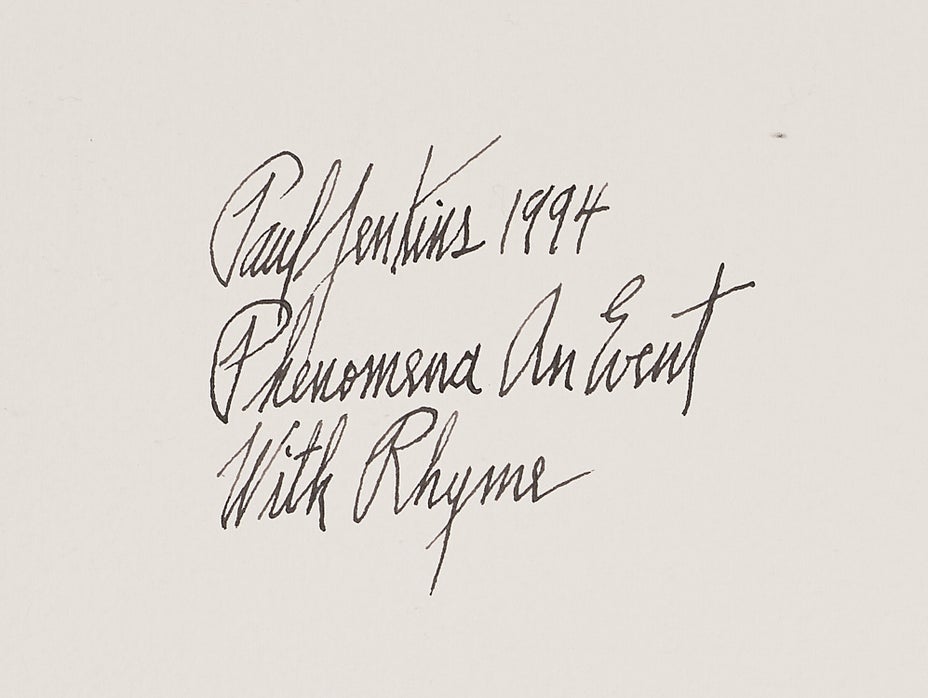 Paul Jenkins 1994
Phenomena An Event
With Rhyme